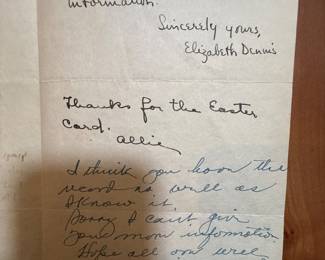 information.
Sincerely yours,
Elizabeth Dennis
Thanks for the Easter
Card.
Allie
I think you have the
record as well as
I know it.
Sorry I can't give
you more information
Hope all are well